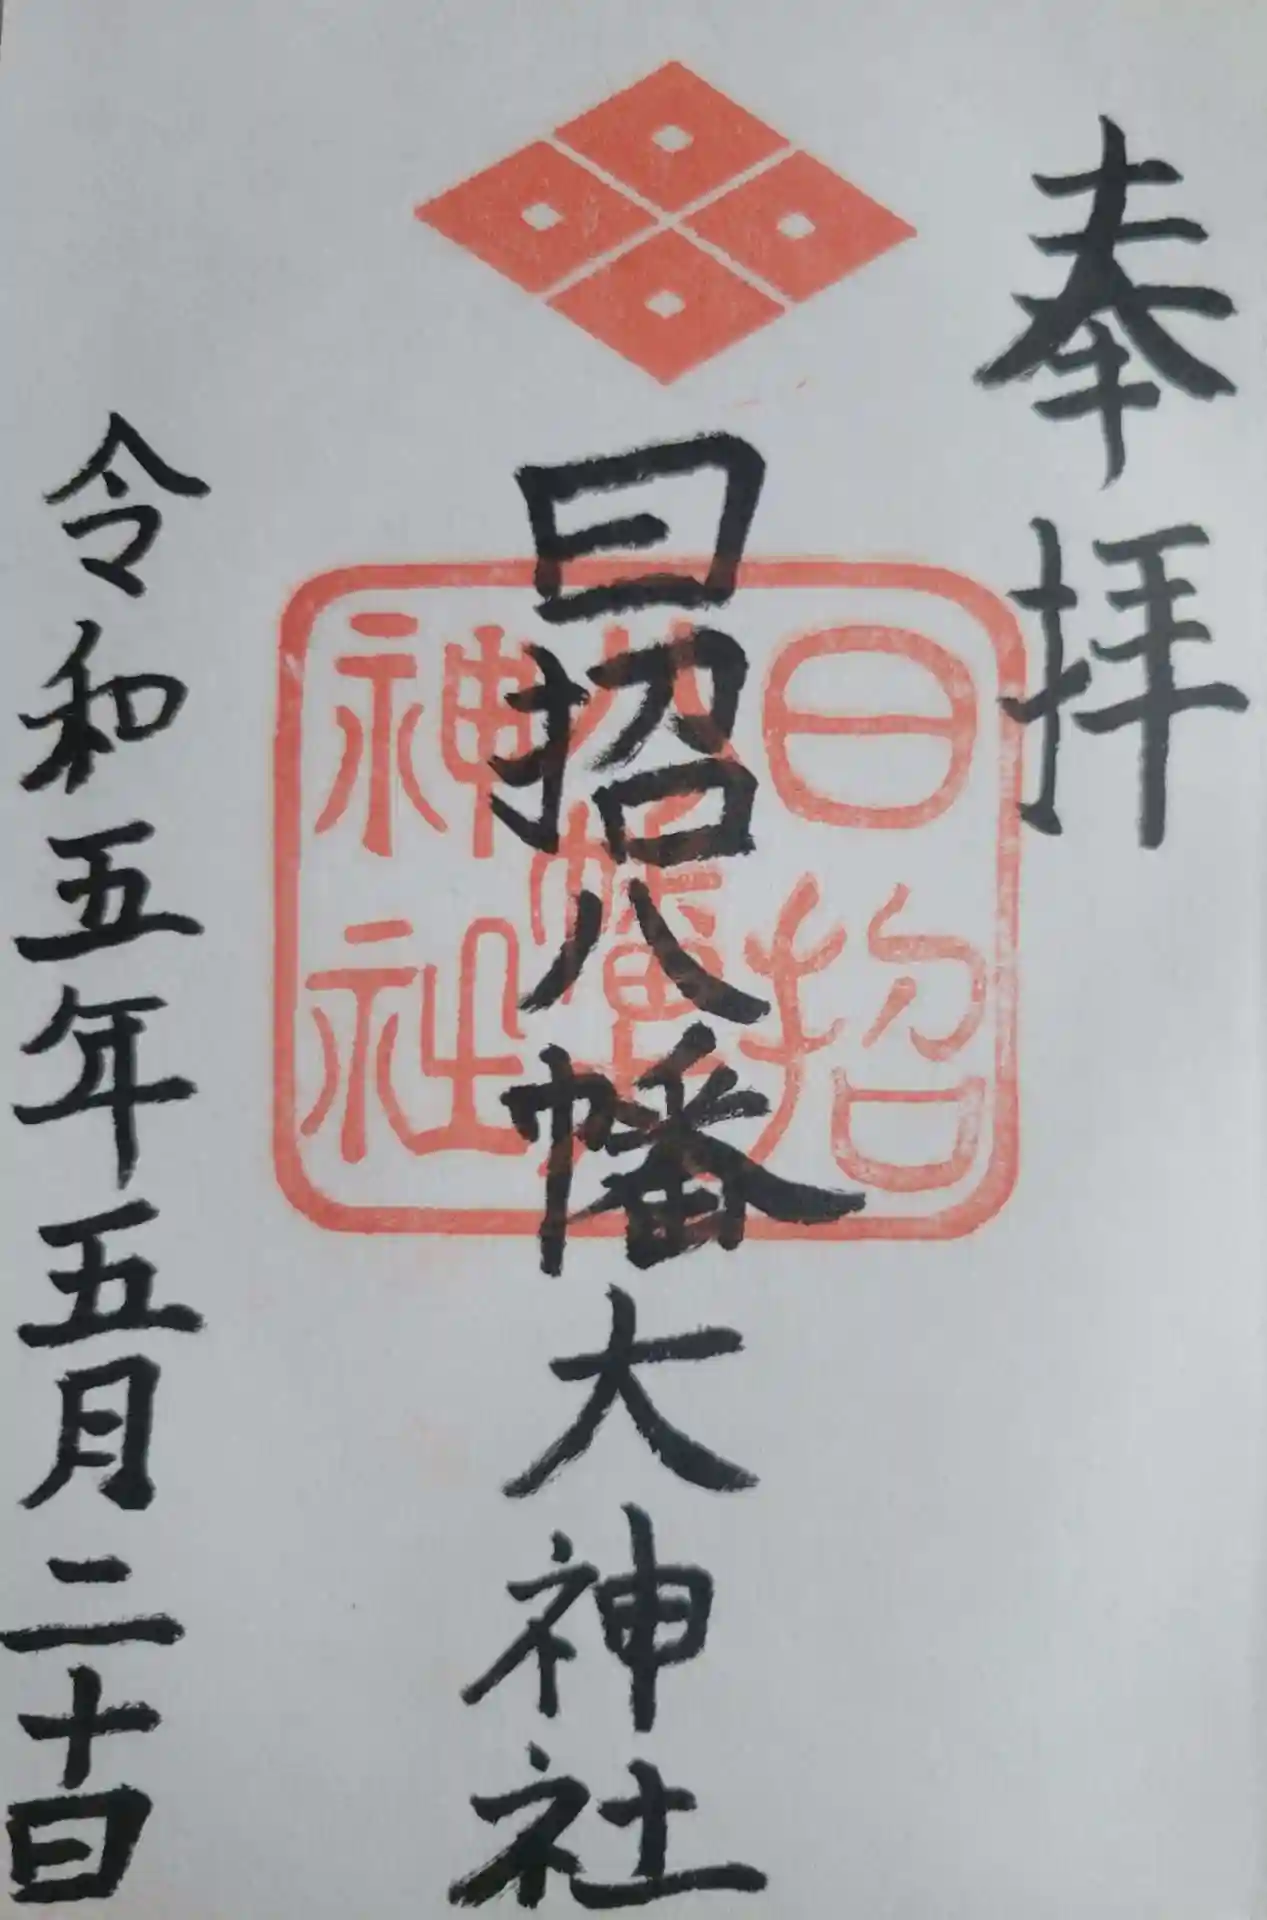 奉拝
日招八幡大神社
日招
八幡
神社
令和五年五月二十日